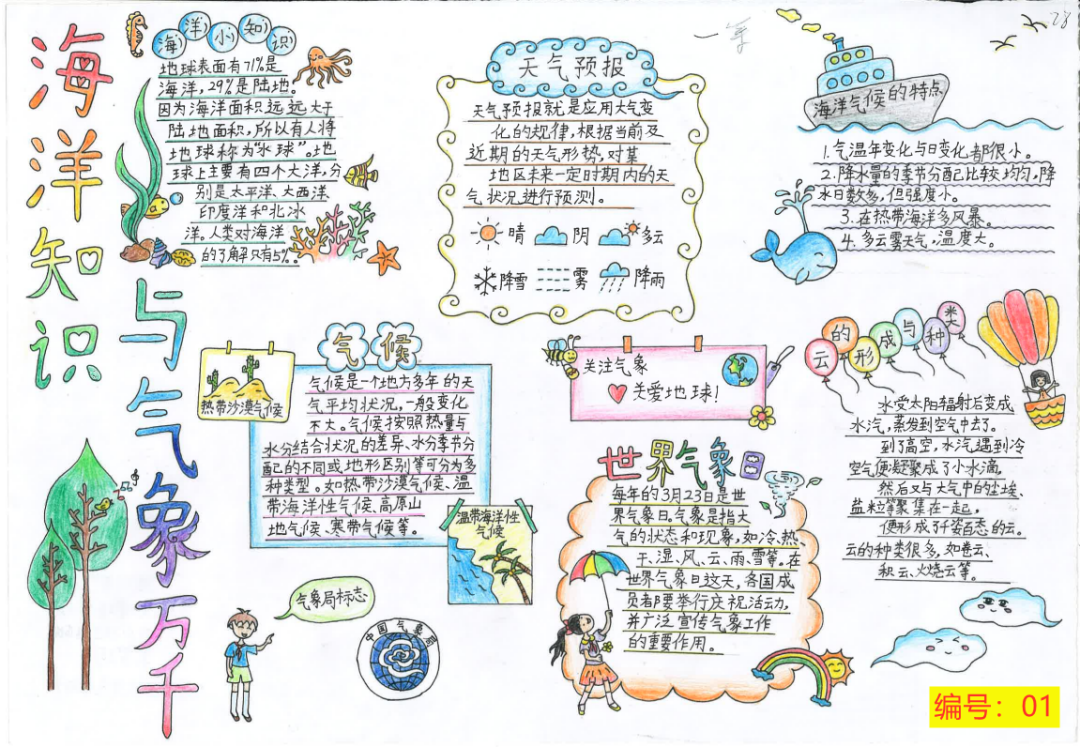 海洋知识
与气象万千
海洋小知识
地球表面有71%是
海洋，29%是陆地。
因为海洋面积远远大于
陆地面积，所以有人将
地球称为“水球”。地
球上主要有四个大洋，分
别是太平洋、大西洋、
印度洋和北冰
洋。人类对海洋
的了解只有5%。
一等
天气预报
天气预报就是应用大气变
化的规律，根据当前及
近期的天气形势，对某
地区未来一定时期内的天
气状况进行预测。
晴 阴 多云
降雪 雾 降雨
28
海洋气候的特点
1.气温年变化与日变化都很小。
2.降水量的季节分配比较均匀，降
水日数多，但强度小。
3.在热带海洋多风暴。
4.多云雾天气，温度大。
气候
热带沙漠气候
气候是一个地方多年的天
气平均状况，一般变化
不大。气候按照热量与
水分结合状况的差异、水分季节分
配的不同或地形区别等可分为多
种类型。如热带沙漠气候、温
带海洋性气候、高原山
地气候、寒带气候等。
温带海洋性
气候
关注气象
关爱地球！
云的形成与种类
水受太阳辐射后变成
水汽，蒸发到空气中去了。
到了高空，水汽遇到冷
空气便凝聚成了小水滴，
然后又与大气中的尘埃、
盐粒等聚集在一起，
便形成了千姿百态的云。
云的种类很多，如卷云、
积云、火烧云等。
世界气象日
每年的3月23日是世
界气象日。气象是指大
气的状态和现象，如冷、热、
干、湿、风、云、雨、雪等。在
世界气象日这天，各国成
员都要举行庆祝活动，
并广泛宣传气象工作
的重要作用。
气象局标志
中国气象局
编号：01